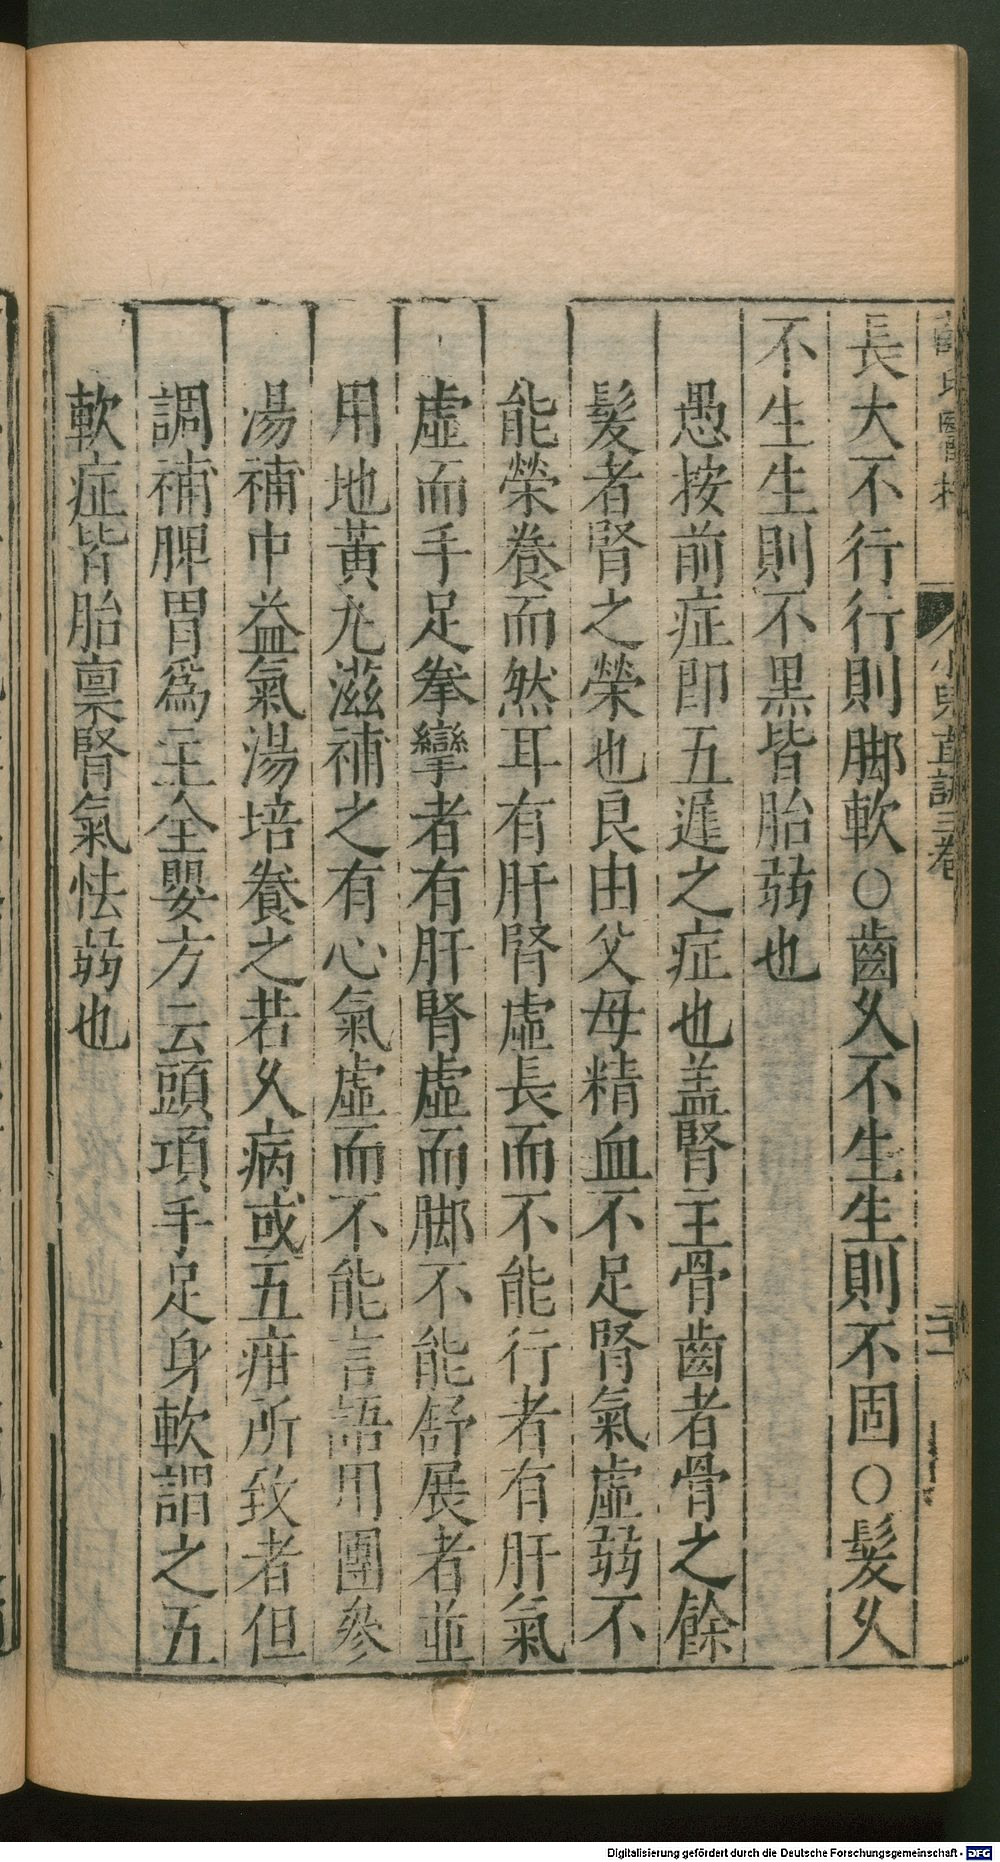 薛氏醫按 小兒直訣三卷 二十
長大不行行則脚軟○齒久不生生則不固○髮久
不生生則不黒皆胎弱也
愚按前症即五遲之症也盖腎主骨齒者骨之餘
髮者腎之榮也良由父母精血不足腎氣虛弱不
能榮養而然耳有肝腎虛長而不能行者有肝氣
虛而手足拳攣者有肝腎虛而脚不能舒展者並
用地黃尢滋補之有心氣虛而不能言語用團參
湯補中益氣湯培養之若久病或五疳所致者但
調補脾胃爲主全嬰方云頭項手足身軟謂之五
軟症皆胎禀腎氣怯弱也
Digitalisierung gefördert durch die Deutsche Forschungsgemeinschaft - DFG